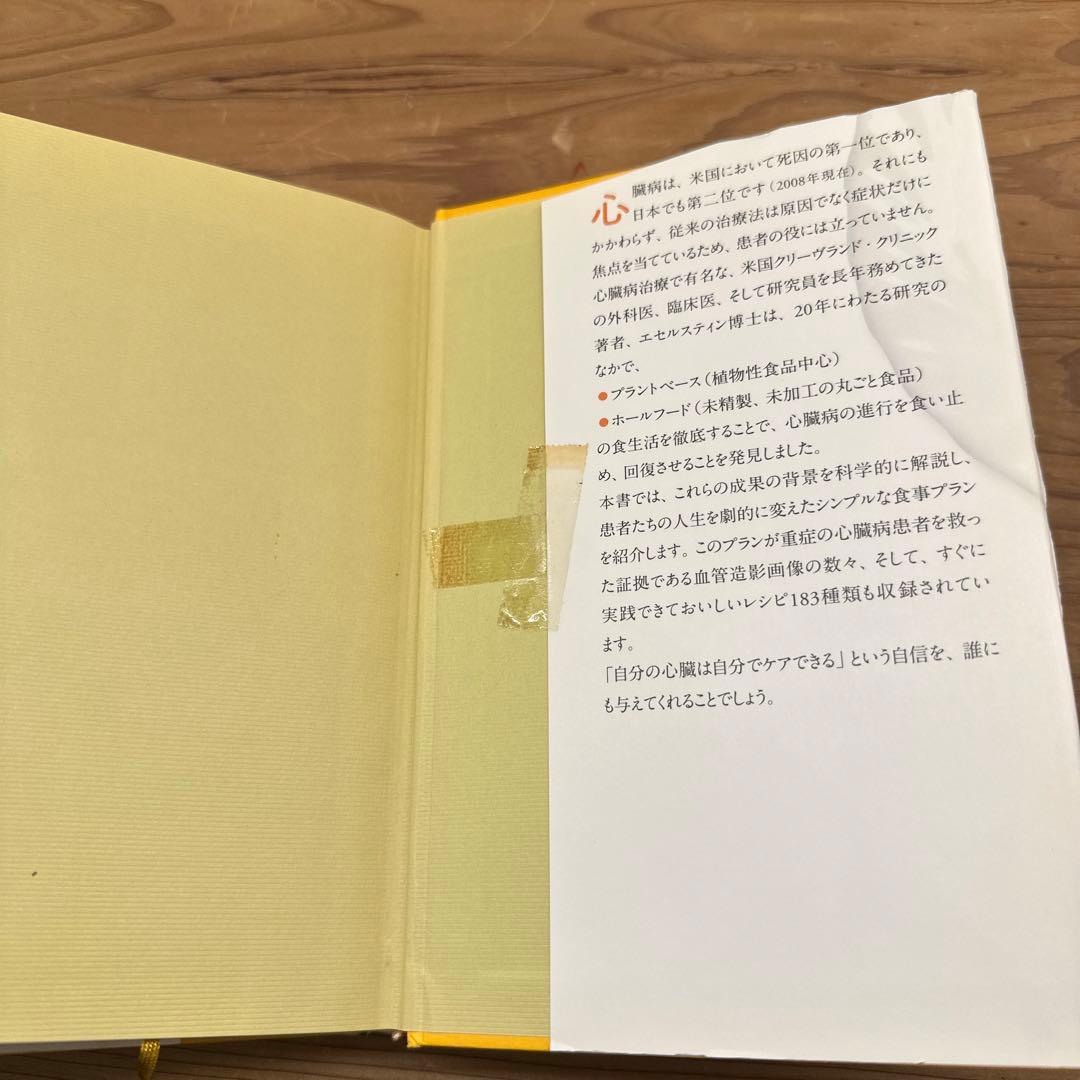 心臓病は、米国において死因の第一位であり、
日本でも第二位です(2008年現在)。それにも
かかわらず、従来の治療法は原因でなく症状だけに
焦点を当てているため、患者の役には立っていません。
心臓病治療で有名な、米国クリーヴランド・クリニック
の外科医、臨床医、そして研究員を長年務めてきた
著者、エセルスティン博士は、20年にわたる研究の
なかで、
●プラントベース(植物性食品中心)
●ホールフード(未精製、未加工の丸ごと食品)
の食生活を徹底することで、心臓病の進行を食い止
め、回復させることを発見しました。
本書では、これらの成果の背景を科学的に解説し、
患者たちの人生を劇的に変えたシンプルな食事プラン
を紹介します。このプランが重症の心臓病患者を救っ
た証拠である血管造影画像の数々、そして、すぐに
実践できておいしいレシピ183種類も収録されてい
ます。
「自分の心臓は自分でケアできる」という自信を、誰に
も与えてくれることでしょう。